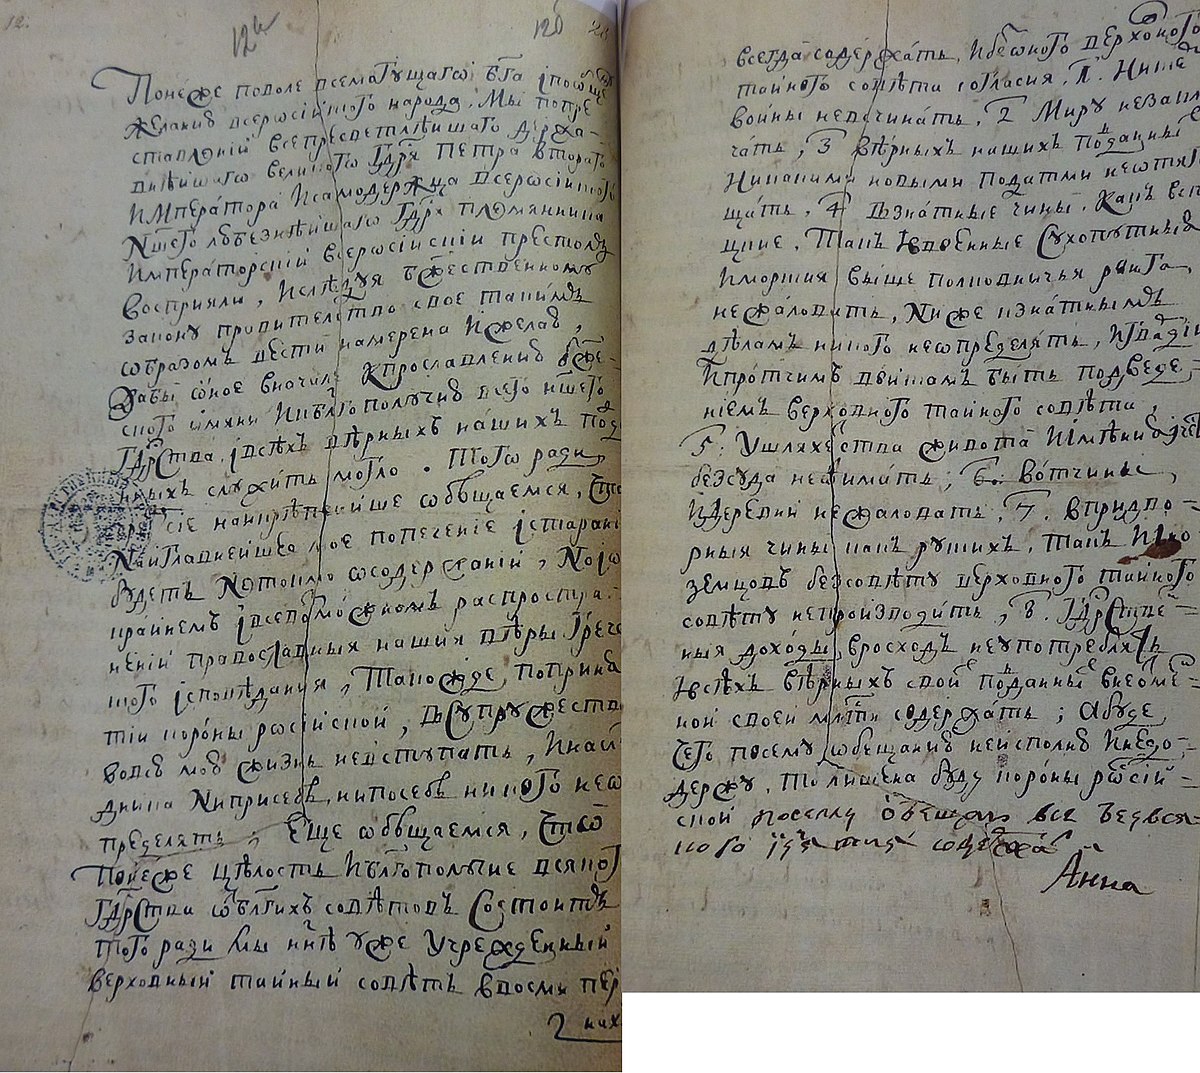 12.
12а 12б
Понеже поволе всемогущагѡ бга іпоѡбще
желанию всеросіиского народа. Мы попре
ставлениі всепресветлѣишаго держа-
внѣишаго великого Гдря Петра втораго
Императора Исамодержца Всеросіиского
Ншего любезнѣишагѡ Гдря племянника
Императорскиі всеросіисиі престолъ
восприяли, Іслѣдуя Бжественному
закону правителство свое такимъ
ѡбразомъ вести намерена Ижелаю,
Дабы ѡное вначале кпрославлению бже-
ского имяни Икблгополучию всего ншего
Гдрства, івсѣхъ вѣрныхъ нашихъ под
ныхъ служить могло. Тогѡ ради,
чрезъ сіе наикрѣпчаише ѡбѣщаемся, Что
Наиглавнеишее мое попечение істарани
будетъ Нетокмо ѡсодержаниі, Ноіѡ
краинемъ івсевозможномъ распростра-
нениі православныя нашия вѣры Грече
ского ісповѣдания, Такожде, поприня
тиі короны росіискои, Всупружество
вовсю мою жизнь невступать, Инаслѣ
дника Ниприсебѣ, нипосебѣ никого неѡ
пределять, Еще ѡбѣщаемся, Что
Понеже цѣлость Иблгополучие всякого
Гдрства ѿблгихъ совѣтовъ Состоитъ
того ради Мы ннѣ уже Учрежденныи
верховныи таиныи совѣтъ восми пер
всегда содержать, Ибезоного Верховного
таиного совѣта согласия. 1. Ниске
воины невсчинать, 2 Миру незаклю
чать, 3 вѣрныхъ нашихъ подданныхъ
Никакими новыми податми неотяго
щать, 4 Взнатные чины, Какъ вста
цкие, Такъ Ивоенные Сухопутныя
Иморския выше полковничья ранга,
нежаловать, Ниже кзнатнымъ
дѣламъ никого неѡпределять, Игвардиі
Ипротчимъ воискамъ быть подведе-
ниемъ верховного таиного совѣта,
5. Ушляхетства живота Иімѣния
безсуда неѿимать, 6. вотчины,
Идеревни нежаловать, 7. впридво-
рныя чины какъ руских, такъ Ино
земцовъ безсовѣту верховного таиного
совѣту непроизводить, 8. Гдрствен-
ныя доходы вросходъ неупотреблять
Ивсѣхъ вѣрныхъ своих подданных внеѡтме-
ннои своеи млсти содержать; Абуде
чего посему ѡбещанию неисполню Инедо-
держу, То лишена буду короны росіи-
скои посему обещаю все безвся-
кого изятия содержать
Анна